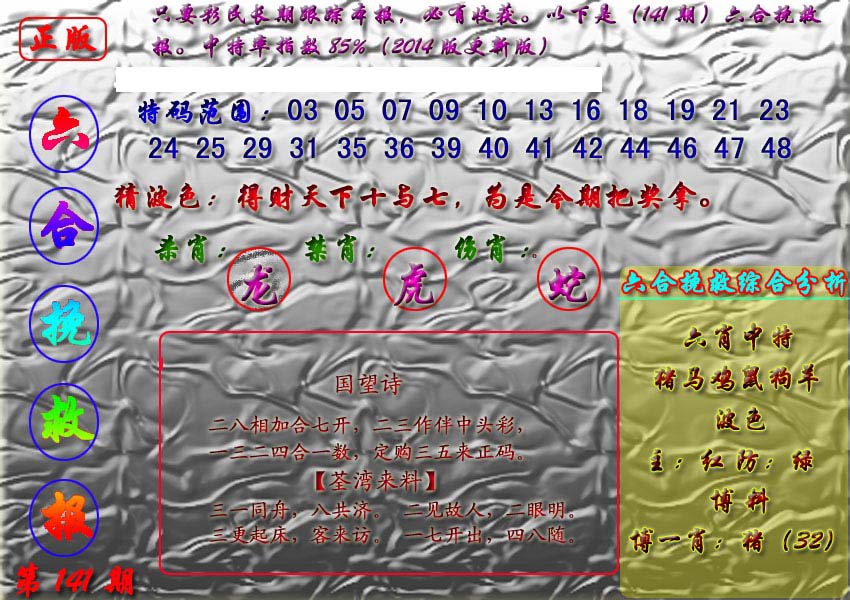 正版
只要彩民长期跟踪本报，必有收获。以下是（141期）六合挽救
报。中特率指数85%（2014版更新版）
六合挽救报
第141期
特码范围：03 05 07 09 10 13 16 18 19 21 23
24 25 29 31 35 36 39 40 41 42 44 46 47 48
猜波色：得财天下十与七，为是今期把奖拿。
杀肖：龙 禁肖：虎 伤肖：蛇
国望诗
二八相加合七开，二三作伴中头彩，
一三二四合一数，定购三五来正码。
【荃湾来料】
三一同舟，八共济。 二见故人，二眼明。
三更起床，客来访。 一七开出，四八随。
六合挽救综合分析
六肖中特
猪马鸡鼠狗羊
波色
主：红防：绿
博料
博一肖：猪（32）